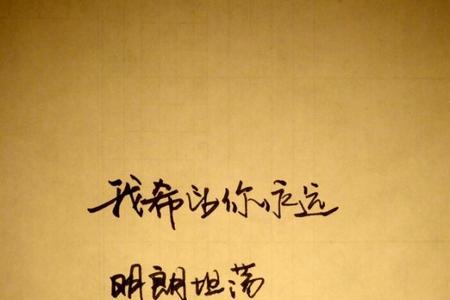 我希望你永远
明朗坦荡